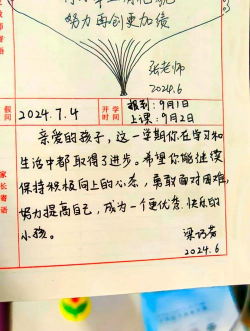 努力再创更加绩
张老师
2024.6
假
间
2024.7.4
开学
时间
报到: 9月1日
上课: 9月2日
家
长
寄
语
亲爱的孩子,这一学期你在学习和
生活中都取得了进步。希望你能继续
保持积极向上的心态,勇敢面对困难,
努力提高自己,成为一个更优秀、快乐的
小孩。
2024.6